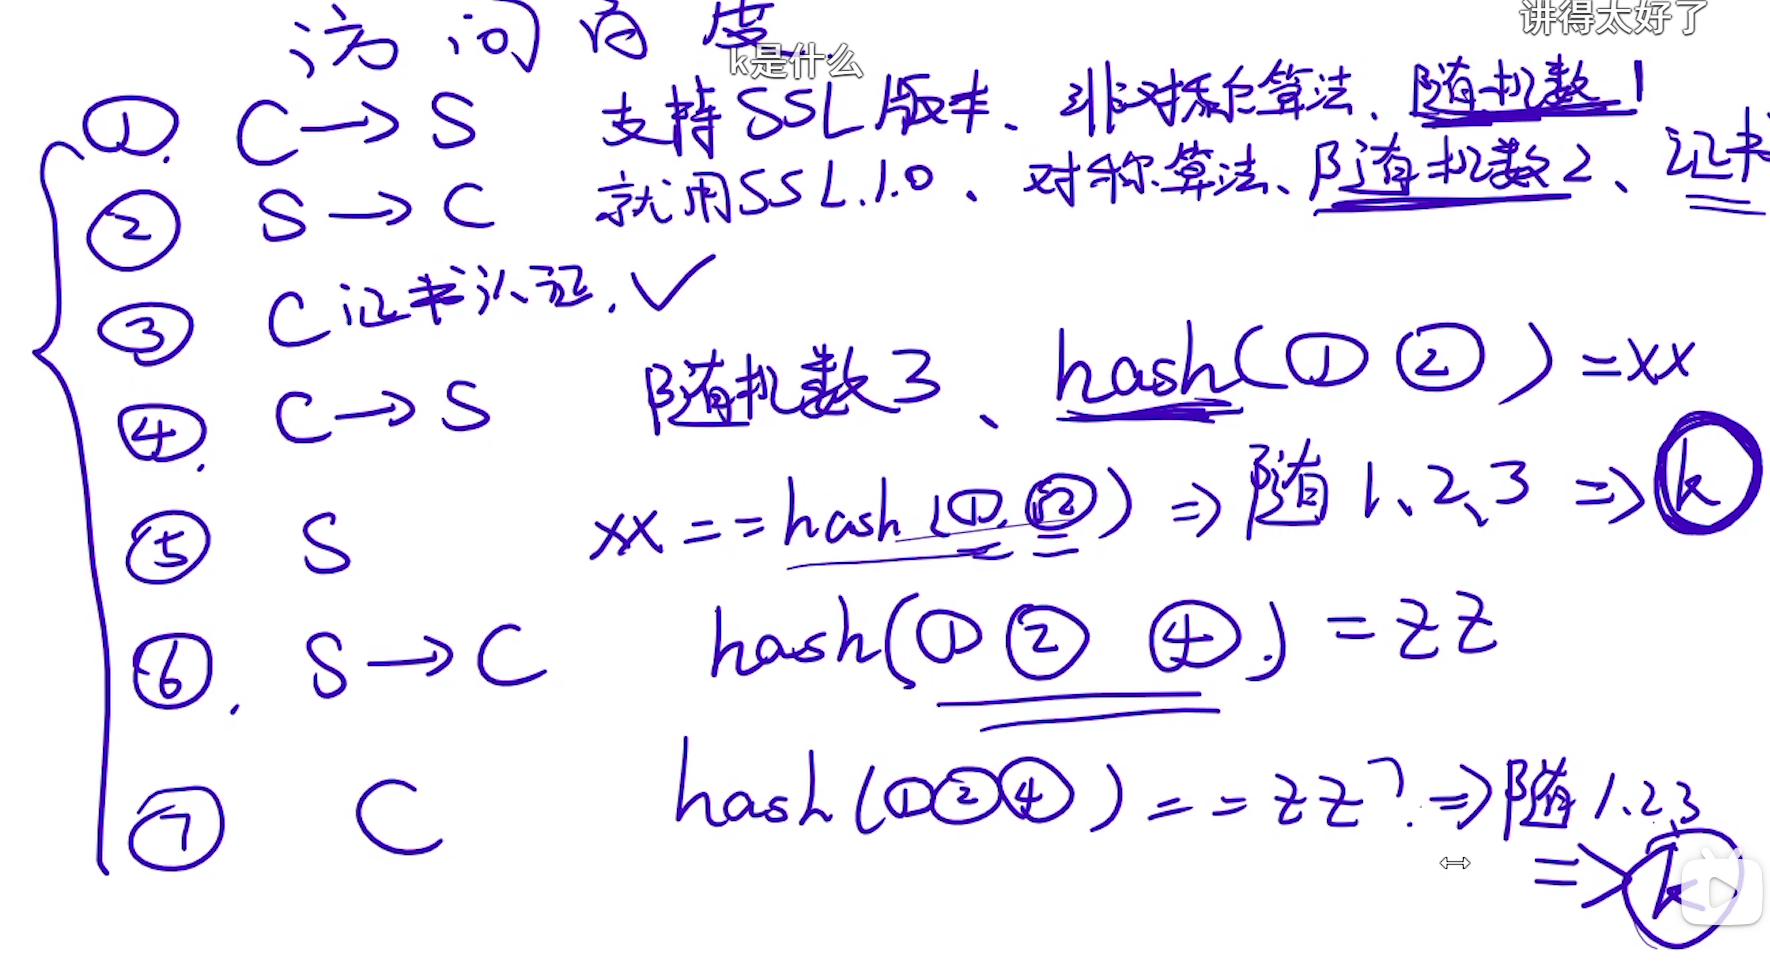 讲得太好了
访问百度
k是什么
① C→S 支持SSL版本、非对称算法、随机数1
② S→C 就用SSL.1.0、对称算法、随机数2、证书
③ C证书认证.✓
④ C→S 随机数3、hash(① ②)=xx
⑤ S xx==hash(①.②)⇒随1、2、3⇒k
⑥ S→C hash(① ② ④.)=zz
⑦ C hash(①②④)==zz?⇒随1.2.3
⇒k